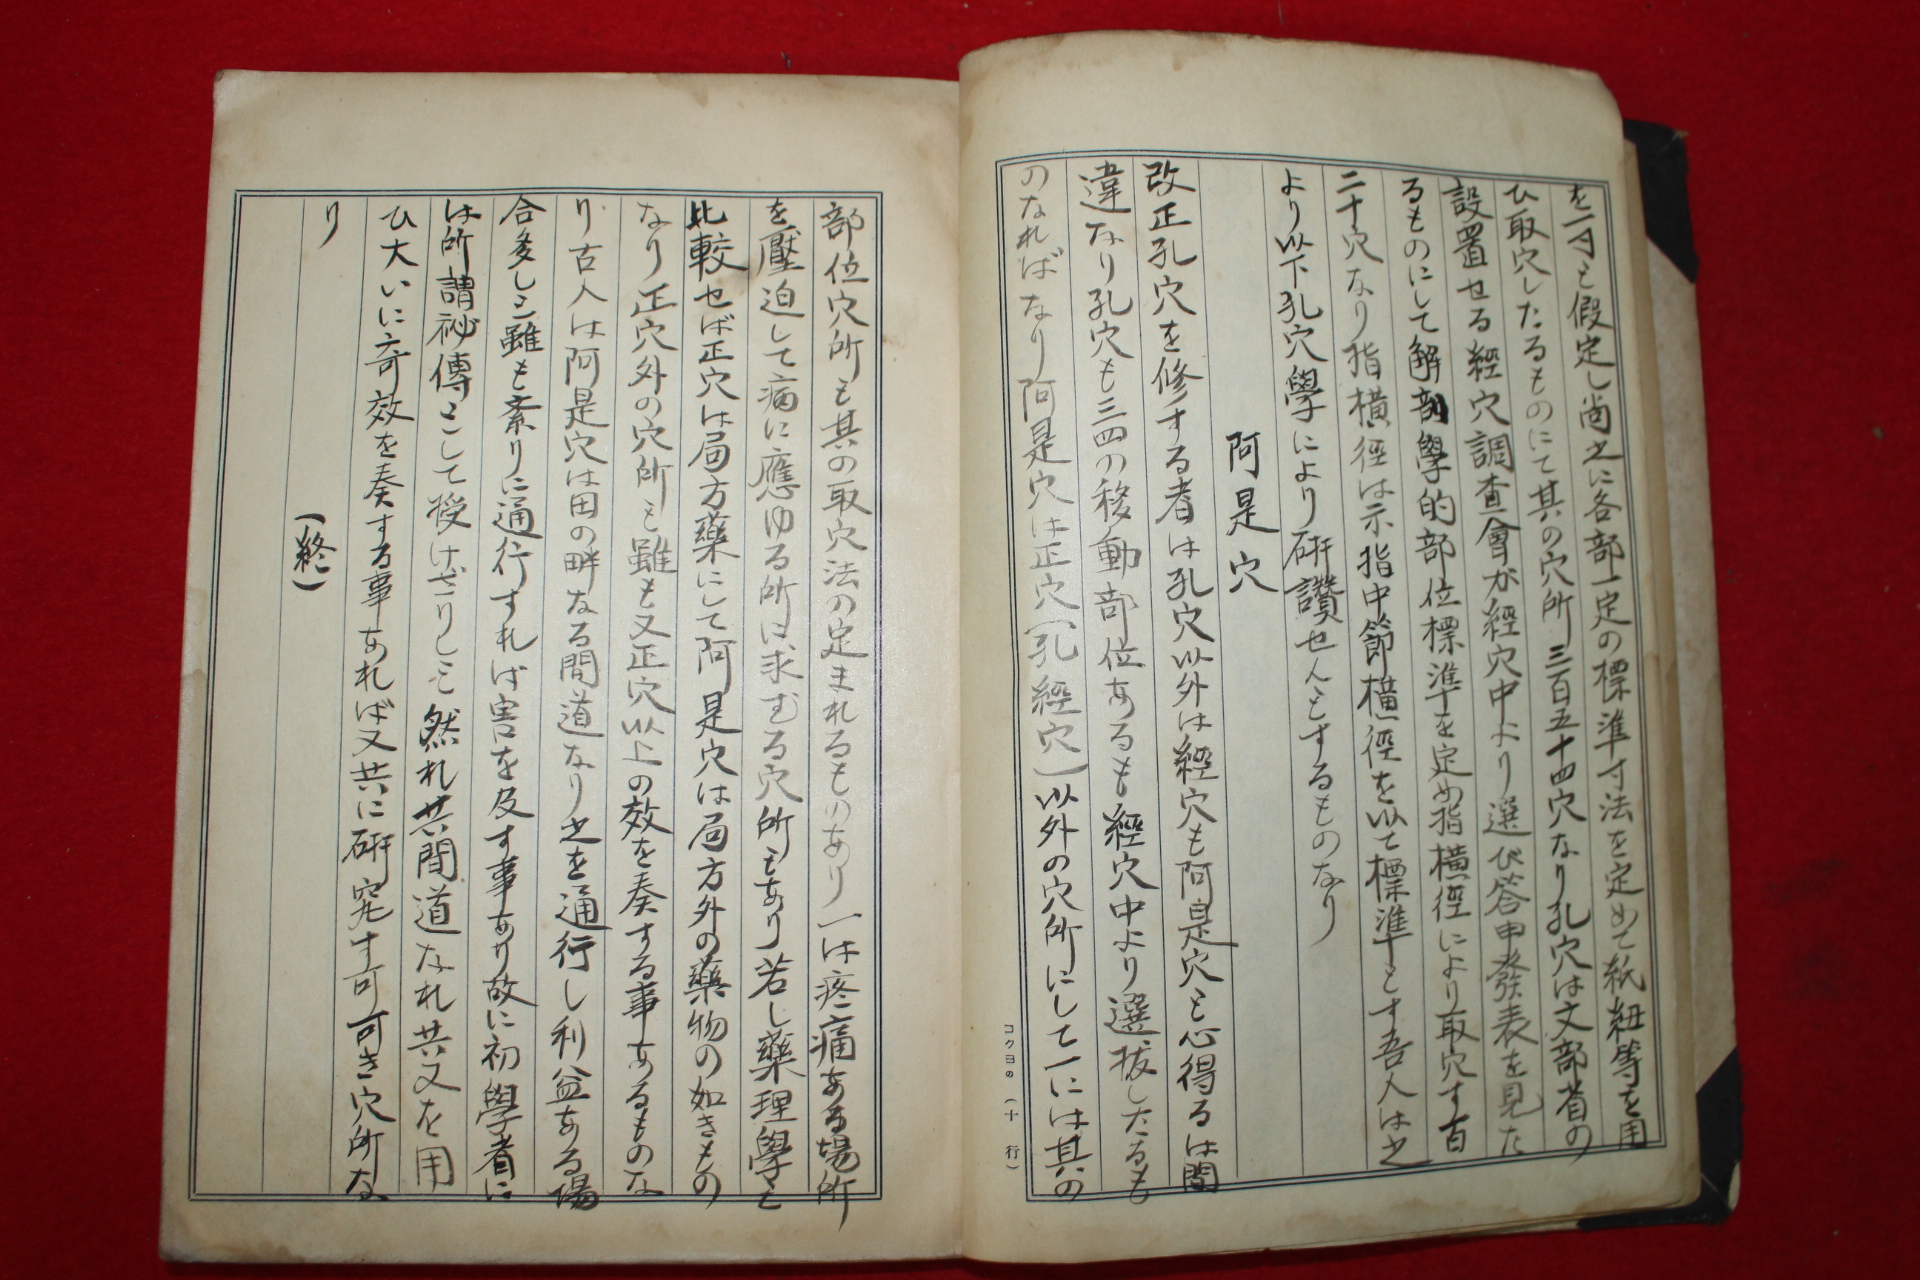 を一寸と假定し尚之に各部一定の標準寸法を定めて紙紐等を用
ひ取穴したるものにて其の穴所三百五十四穴なり孔穴は文部省の
設置せる經穴調査會が經穴中より選び答申發表を見た
るものにして解剖學的部位標準を定め指横徑により取穴す百
二十穴なり指横徑は示指中節横徑を以て標準とす吾人は之
より以下孔穴學により研讃せんとするものなり
阿是穴
改正孔穴を修する者は孔穴以外は經穴も阿是穴と心得るは間
違なり孔穴も三四の移動部位あるも經穴中より選拔したるも
のなればなり阿是穴は正穴(孔經穴)以外の穴所にして一には其の
コクヨの(十行)
部位穴所も其の取穴法の定まれるものあり一は疼痛ある場所
を壓迫して痛に應ゆる所に求むる穴所もあり若し藥理學と
比較せば正穴は局方藥にして阿是穴は局方外の藥物の如きもの
なり正穴外の穴所と雖も又正穴以上の效を奏する事あるものな
り古人は阿是穴は田の畔なる間道なり之を通行し利益ある場
合多しと雖も紊りに通行すれば害を及す事あり故に初學者に
は所謂祕傳として授けざりしと然れ共間道なれ共又を用
ひ大いに奇效を奏する事あれば又共に研究す可可き穴所な
り
(終)